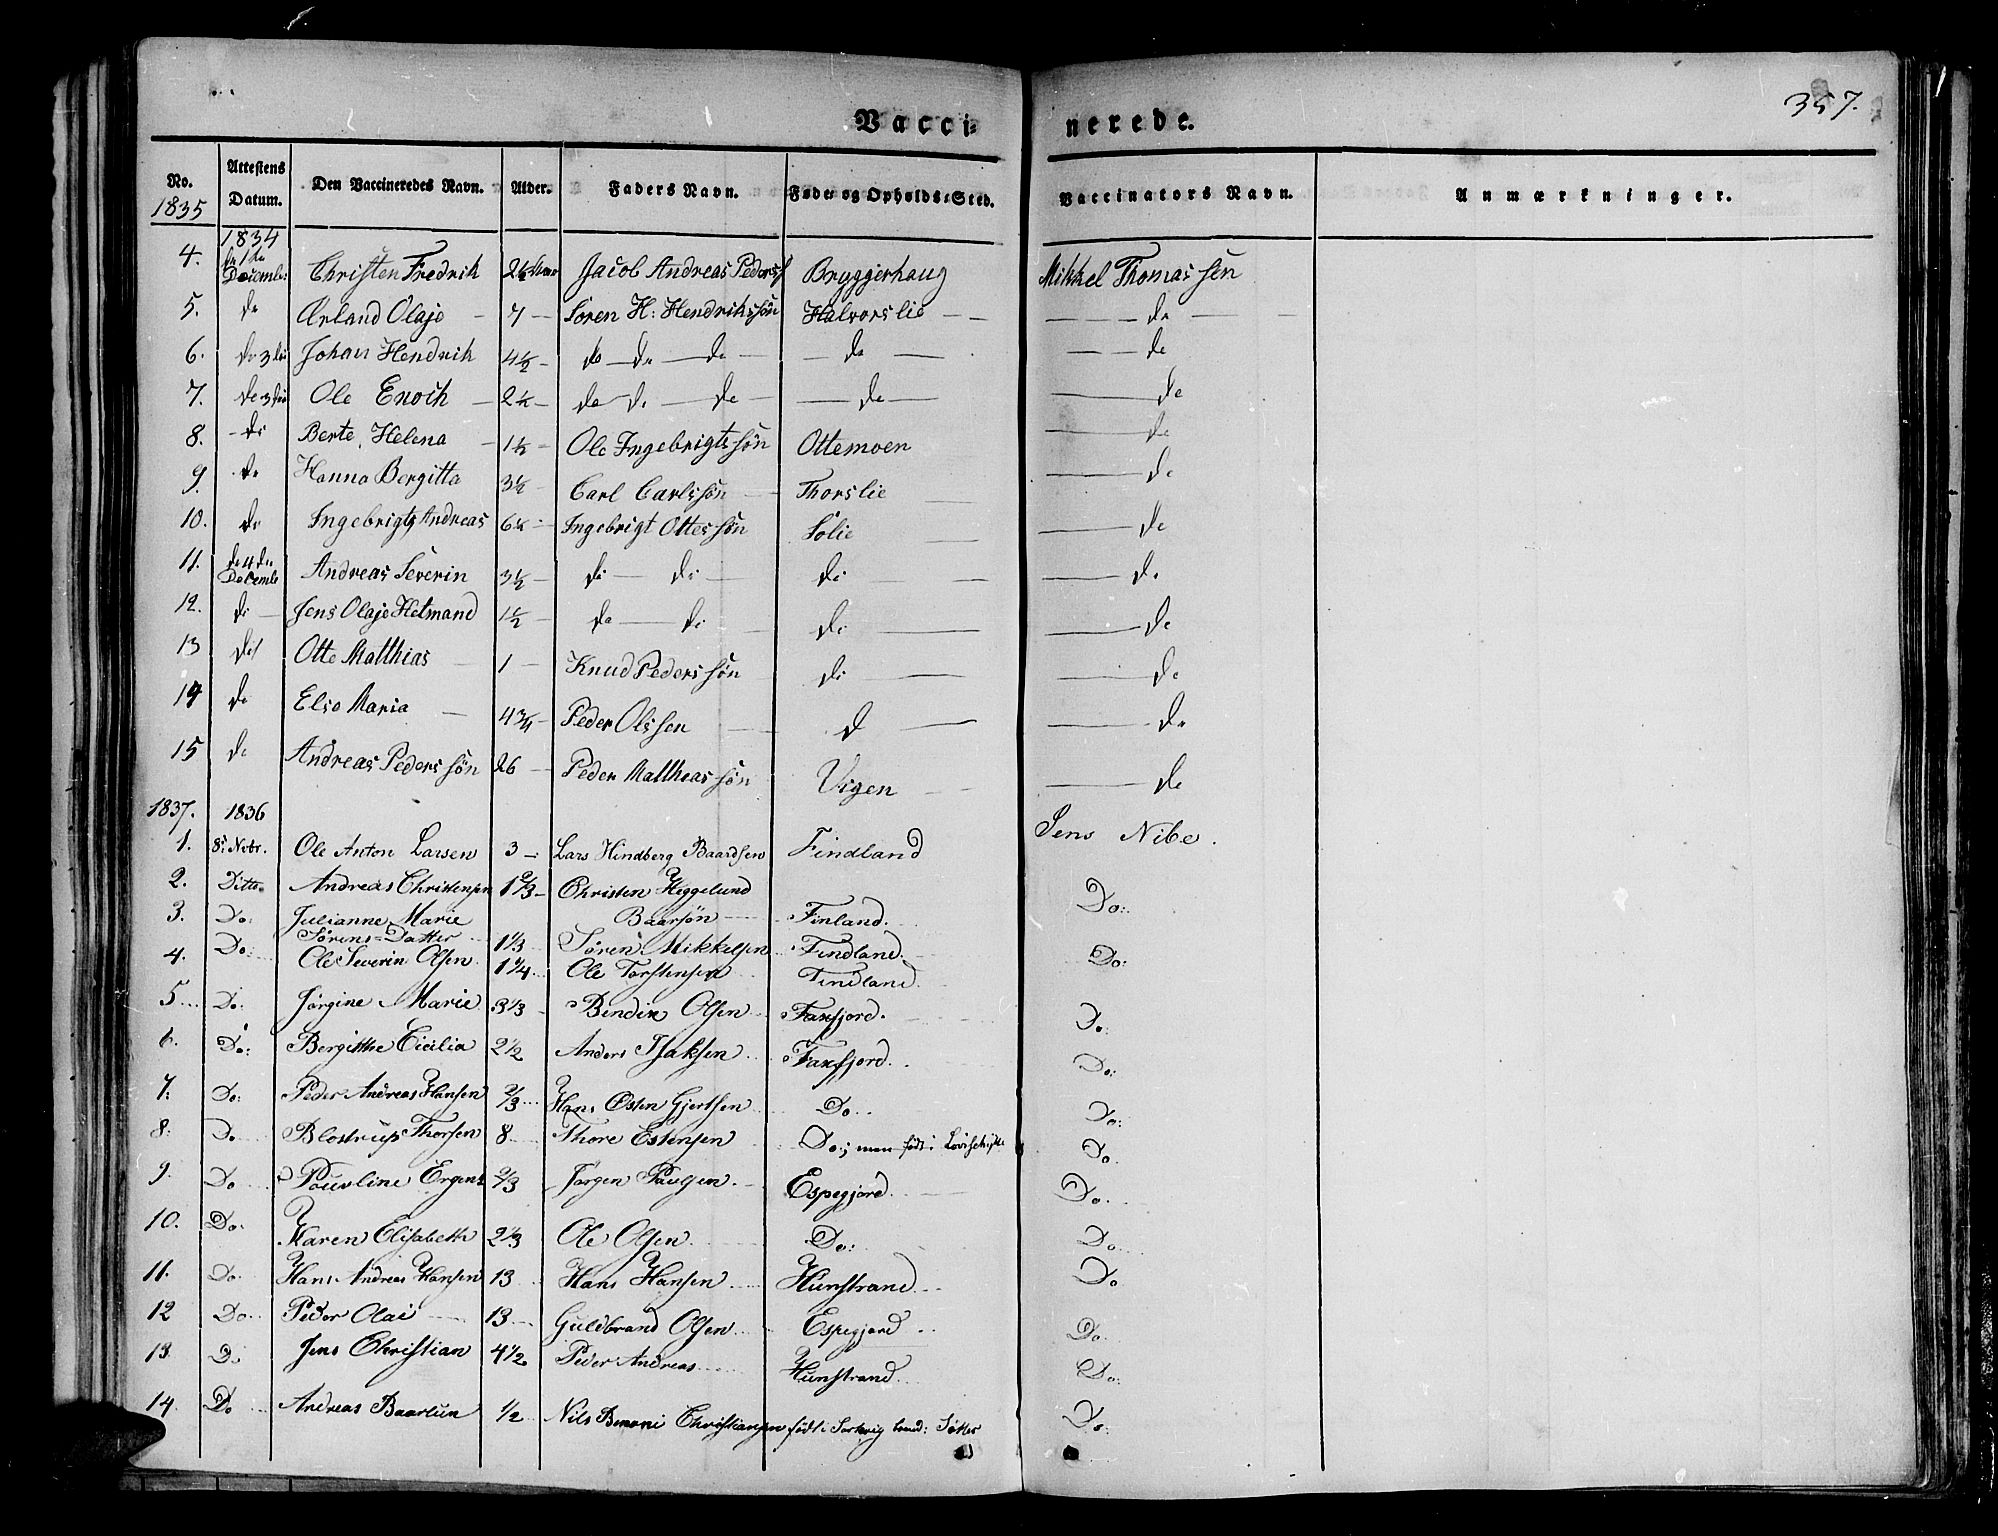 Vaccinerede.
357.
No. Attestens Datum. Den Vaccineredes Navn. Alder. Faders Navn. Føde- og Opholds-Sted. Vaccinators Navn. Anmærkninger.
1835
1834
4. December Christen Fredrik Jacob Andreas Peders Bryggerhaug Mikkel Thomassen
5. do Erland Olaje — 7 — Søren H: Hendrikssøn Halvorslie — — do —
6. do Johan Hendrik 4½ — do — do — do — do — — do
7. do Ole Enoch — 2½ — do do — do — do — — do
8. — do Berte Helena — 1½ — Ole Ingebrigtssøn Ottemoen — do
9. do Hanna Bergitta 3½ — Carl Carlssøn — Thorslie — — do
10. do Ingebrigt Andreas 6½ — Ingebrigt Ottessøn Solie — — do
11. do 4de December Andreas Severin 3½ — do — do — do — — do
12. do — Jens Olaje Hetmand 1½ — do — do — do — — do
13 do Otte Matthias — 1 — Knud Pederssøn do — — do
14 do Elso Maria — 4¾ — Peder Olssen — d — — do
15 do Andreas Pederssøn 26 — Peder Mattheassøn Vigen — — do
1837. 1836
1. 8. Novbr. Ole Anton Larsen 3 — Lars Hindberg Baardsen Findland Jens Nibe.
2. Ditto Andreas Christensen 1⅔ — Christen Heggelund
Baarsøn — Finland. Do:
3. Do: Julianne Marie
Sørens-Datter 1⅓ Søren Mikkelsen Findland. Do:
4. Do: Ole Severin Olsen 1¼ Ole Torstensen Findland.
5. Do: Jørgine Marie 3⅓ Bendix Olsen Faxfjord. Do:
6. Do: Bergitthe Cicilia 2½ Anders Isaksen Faxfjord. Do:
7. Do: Peder Andreas Hansen ⅔ Hans Østen Gjertsen Do. Do:
8. Do Blostrup Thorsen 8 Thore Estensen Do; men født i Do.
9. Do Pouvline Ergens ⅔ Jørgen Paulsen. Espegjord. Do.
10. Do. Karen Elisabeth 2⅓ Ole Olsen Do: Do.
11. Do. Hans Andreas Hansen 13 Hans Hansen Hunstrand Do
12 Do. Peder Olai — 13 Guldbrand Olsen Espegjord Do.
13 Do Jens Christian 4½ Peder Andreas Hunstrand Do:
14. Do Andreas Baarlun ½ Nils Benoni Christiansen født i Do: